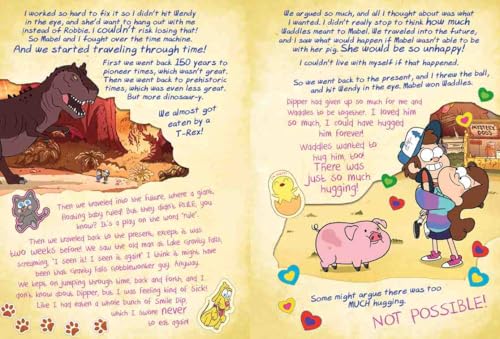 I worked so hard to fix it so I didn't hit Wendy
in the eye, and she'd want to hang out with me
instead of Robbie. I couldn't risk losing that!
So Mabel and I fought over the time machine.
And we started traveling through time!
First we went back 150 years to
pioneer times, which wasn't great.
Then we went back to prehistoric
times, which was even less great.
But more dinosaur-y.
We almost got
eaten by a
T-Rex!
Then we traveled into the future, where a giant,
floating baby ruled! But they didn't RULE, you
know? It's a play on the word "rule".
Then we traveled back to the present, except it was
two weeks before! We saw the old man at Lake Gravity Falls,
screaming, "I seen it! I seen it again!" I think it might have
been that Gravity Falls Gobblewonker guy. Anyway.
We kept on jumping through time, back and forth, and I
don't know about Dipper, but I was feeling kind of Sick!
Like I had eaten a whole bunch of Smile Dip,
which I swore never
to eat again!
We argued so much, and all I thought about was what
I wanted. I didn't really stop to think how much
Waddles meant to Mabel. We traveled into the future,
and I saw what would happen if Mabel wasn't able to be
with her pig. She would be so unhappy!
I couldn't live with myself if that happened.
So we went back to the present, and I threw the ball,
and hit Wendy in the eye. Mabel won Waddles.
Dipper had given up so much for me and
Waddles to be together. I loved him
so much, I could have hugged
him forever!
Waddles wanted to
hug him, too!
There was
just so much
hugging!
MYSTERY
Some might argue there was too
MUCH hugging.
NOT POSSIBLE!